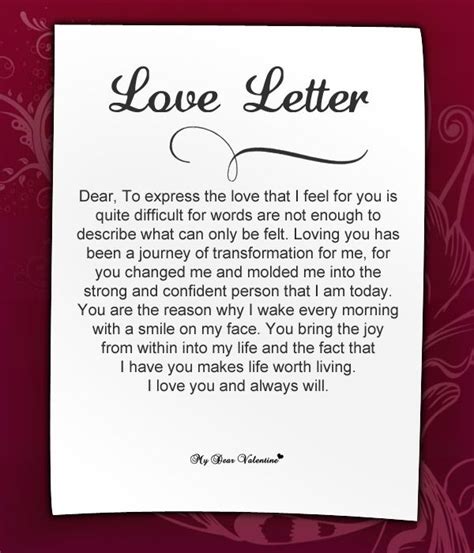 Love Letter
Dear, To express the love that I feel for you is
quite difficult for words are not enough to
describe what can only be felt. Loving you has
been a journey of transformation for me, for
you changed me and molded me into the
strong and confident person that I am today.
You are the reason why I wake every morning
with a smile on my face. You bring the joy
from within into my life and the fact that
I have you makes life worth living.
I love you and always will.
My Dear Valentine